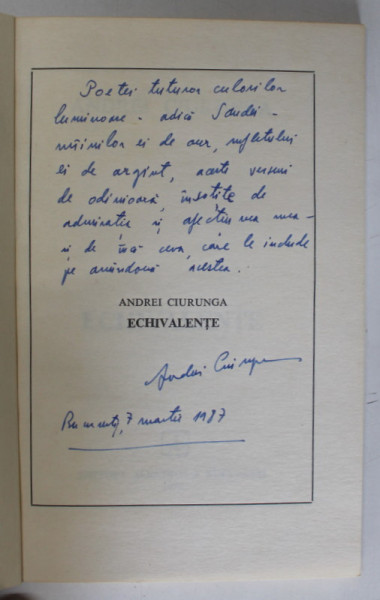 Poetei tuturor culorilor
luminoase - adică Sandei -
mîinilor ei de aur, sufletului
ei de argint, aceste versuri
de odinioară, însoțite de
admirația și afecțiunea mea -
și de încă ceva, care le include
pe amîndouă acestea.
ANDREI CIURUNGA
ECHIVALENȚE
Andrei Ciurunga
București, 7 martie 1987